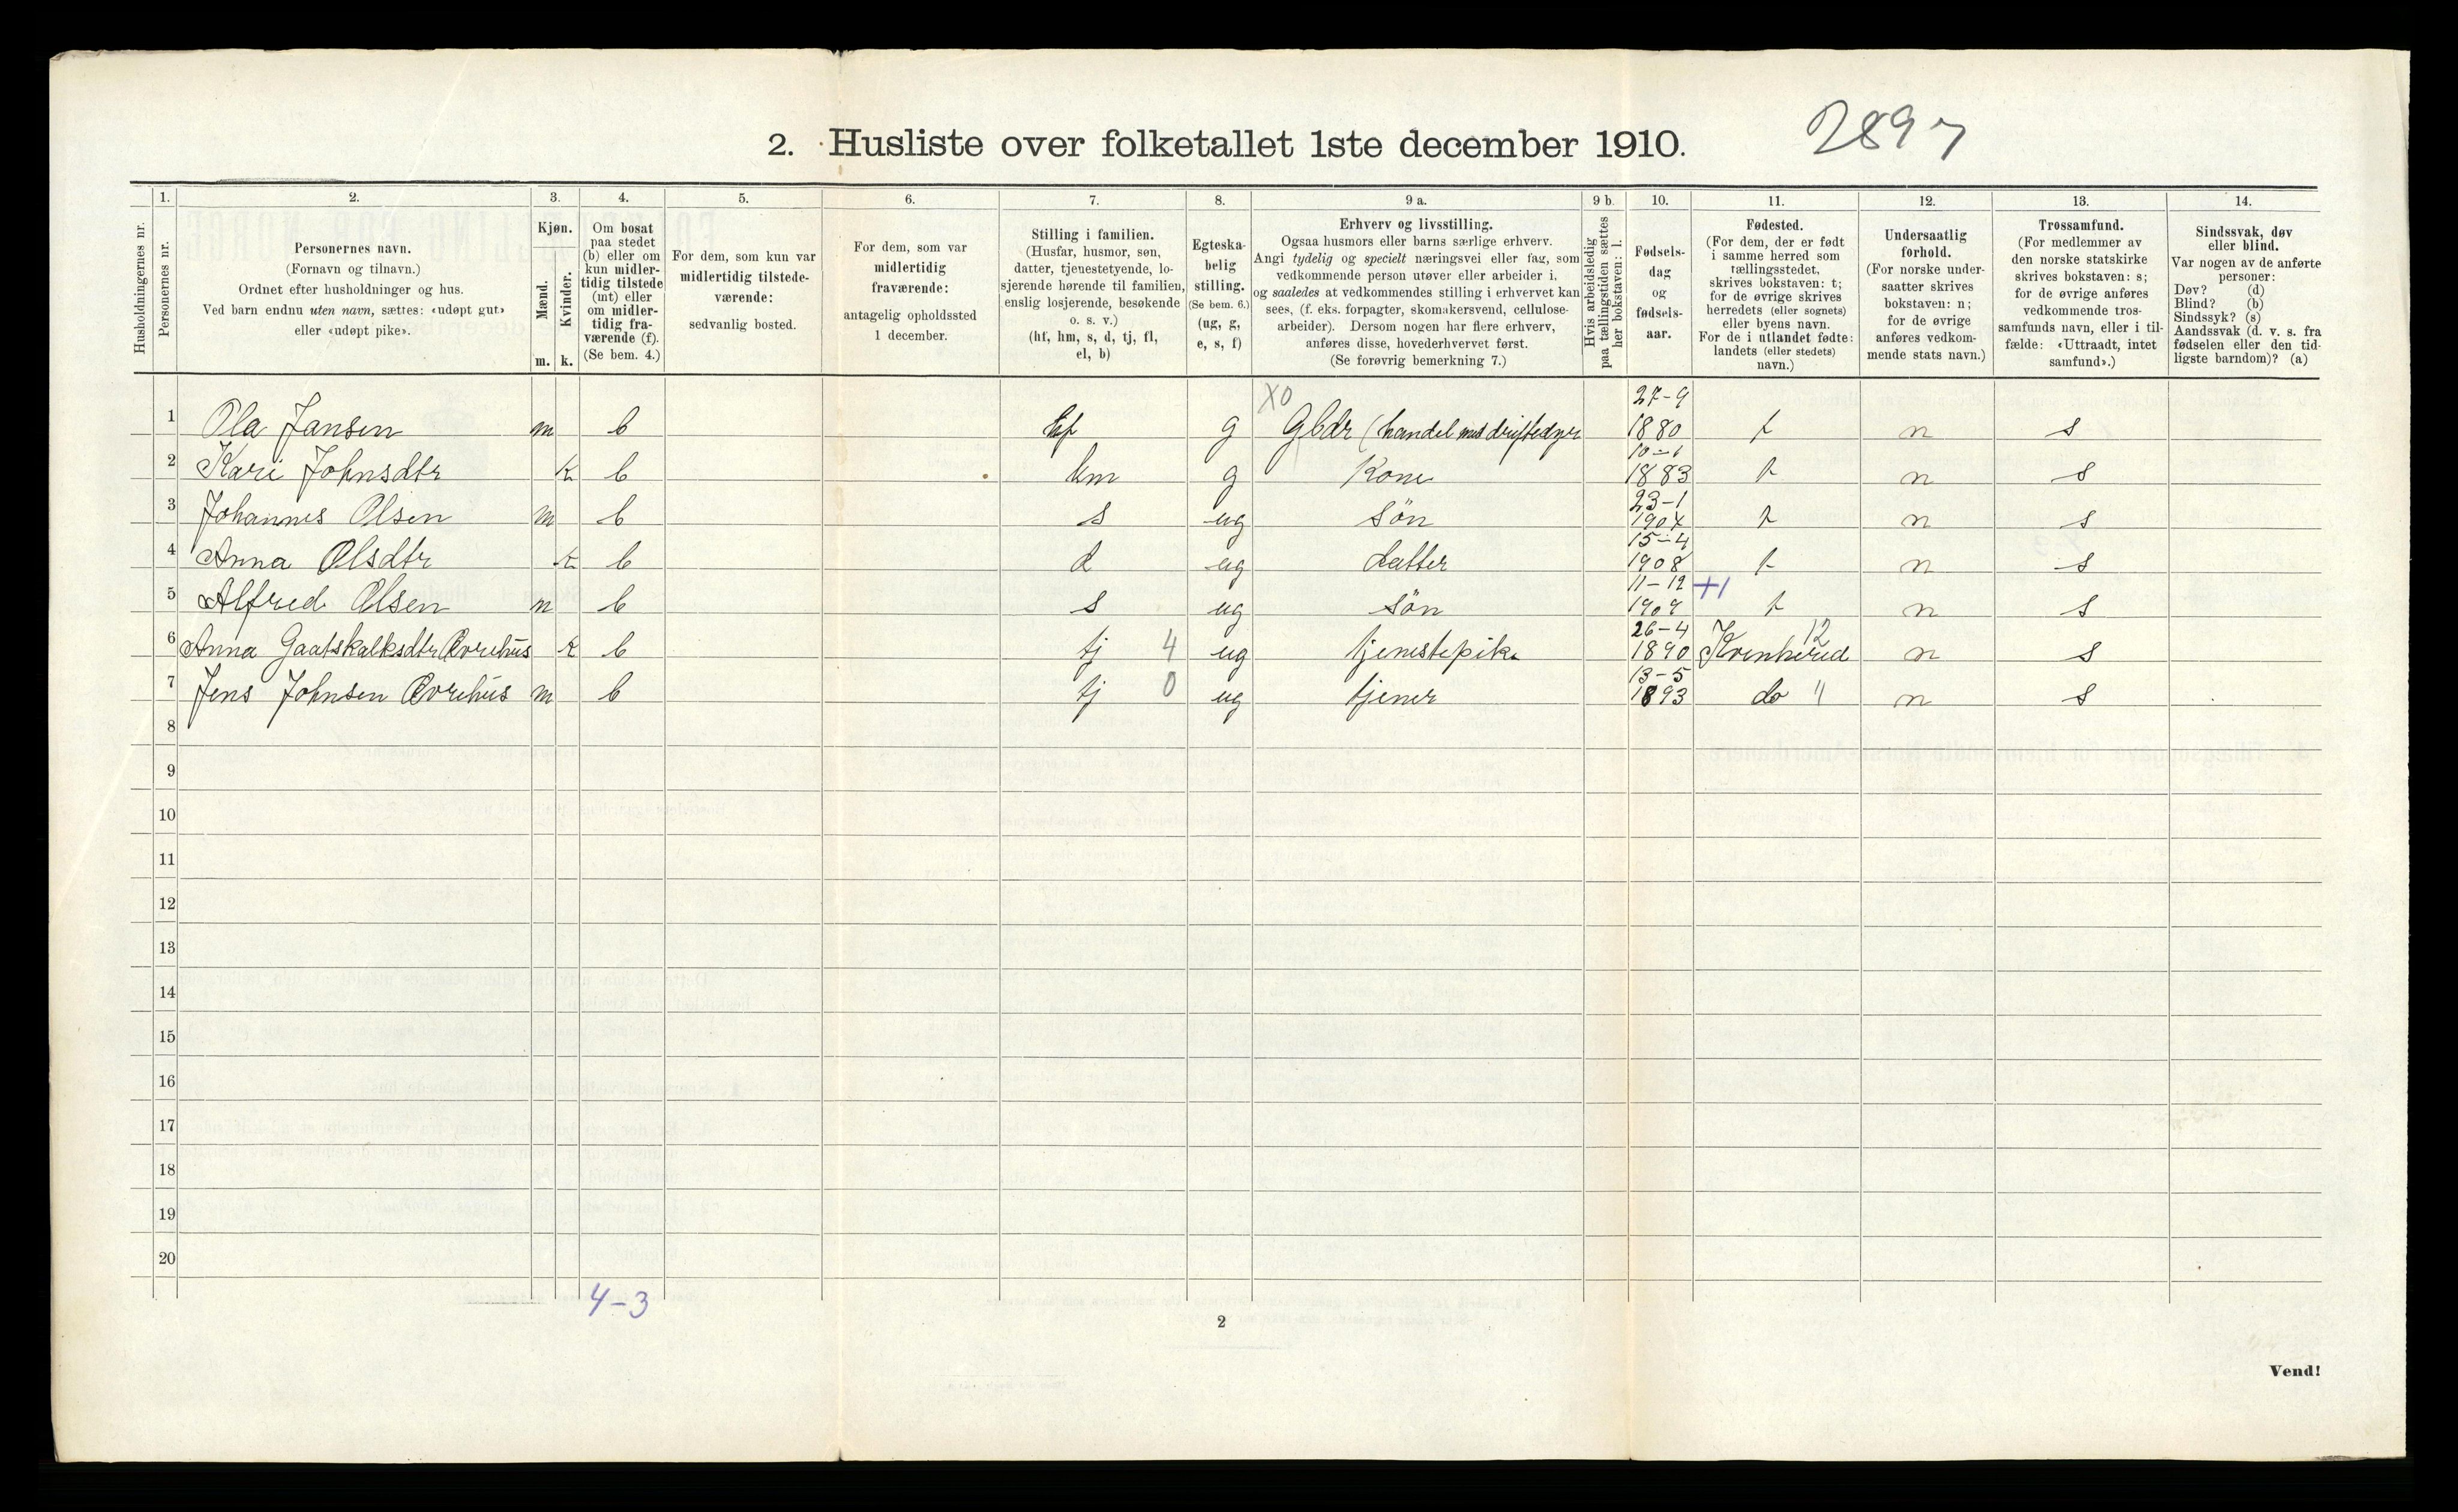 2. Husliste over folketallet 1ste december 1910.
2897
1. 2. 3. 4. 5. 6. 7. 8. 9 a. 9 b. 10. 11. 12. 13. 14.
Husholdningernes nr.
Personernes nr.
Personernes navn.
(Fornavn og tilnavn.)
Ordnet efter husholdninger og hus.
Ved barn endnu uten navn, sættes: «udøpt gut»
eller «udøpt pike».
Kjøn.
Mænd.
Kvinder.
m. k.
Om bosat
paa stedet
(b) eller om
kun midler-
tidig tilstede
(mt) eller
om midler-
tidig fra-
værende (f).
(Se bem. 4.)
For dem, som kun var
midlertidig tilstede-
værende:
sedvanlig bosted.
For dem, som var
midlertidig
fraværende:
antagelig opholdssted
1 december.
Stilling i familien.
(Husfar, husmor, søn,
datter, tjenestetyende, lo-
sjerende hørende til familien,
enslig losjerende, besøkende
o. s. v.)
(hf, hm, s, d, tj, fl,
el, b)
Egteska-
belig
stilling.
(Se bem. 6.)
(ug, g,
e, s, f)
Erhverv og livsstilling.
Ogsaa husmors eller barns særlige erhverv.
Angi tydelig og specielt næringsvei eller fag, som
vedkommende person utøver eller arbeider i,
og saaledes at vedkommendes stilling i erhvervet kan
sees, (f. eks. forpagter, skomakersvend, cellulose-
arbeider). Dersom nogen har flere erhverv,
anføres disse, hovederhvervet først.
(Se forøvrig bemerkning 7.)
Hvis arbeidsledig
paa tællingstiden sættes
her bokstaven: l.
Fødsels-
dag
og
fødsels-
aar.
Fødested.
(For dem, der er født
i samme herred som
tællingsstedet,
skrives bokstaven: t;
for de øvrige skrives
herredets (eller sognets)
eller byens navn.
For de i utlandet fødte:
landets (eller stedets)
navn.)
Undersaatlig
forhold.
(For norske under-
saatter skrives
bokstaven: n;
for de øvrige
anføres vedkom-
mende stats navn.)
Trossamfund.
(For medlemmer av
den norske statskirke
skrives bokstaven: s;
for de øvrige anføres
vedkommende tros-
samfunds navn, eller i til-
fælde: «Uttraadt, intet
samfund».)
Sindssvak, døv
eller blind.
Var nogen av de anførte
personer:
Døv? (d)
Blind? (b)
Sindssyk? (s)
Aandssvak (d. v. s. fra
fødselen eller den tid-
ligste barndom)? (a)
X0 27-9
1 Ola Jansen m b hf g Gbdr (handel med driftedyr 1880 t n s
2 Kari Johnsdtr k b hm g Kone 1883 t n s
23-1
3 Johannes Olsen m b s ug søn 1904 t n s
15-4
4 Anna Olsdtr k b d ug datter 1908 t n s
11-12 +1
5 Alfred Olsen m b s ug søn 1909 t n s
26-4 12
6 Anna Gaatskalksdtr Øvrehus k b tj 4 ug tjenestepike 1890 Kvinherred n s
13-5
7 Jens Johnsen Øvrehus m b tj 0 ug tjener 1893 do " n s
8
9
10
11
12
13
14
15
16
17
18
19
20
4-3
2
Vend!